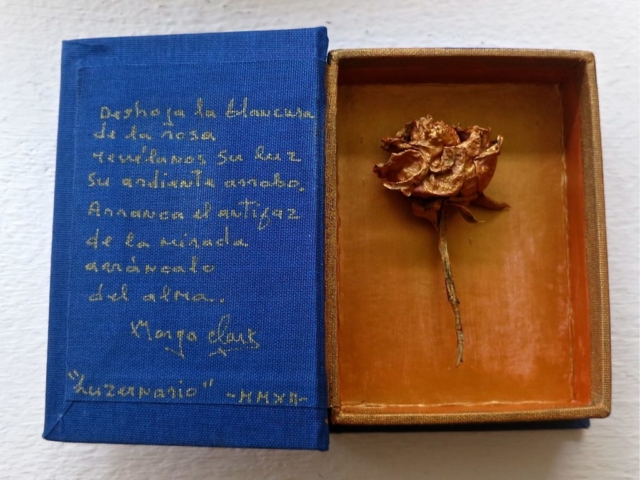 Deshoja la blancura
de la rosa
revélanos su luz
su ardiente arrobo.
Arranca el antifaz
de la mirada
arráncalo
del alma..
Margo Clark
"Luzernario"